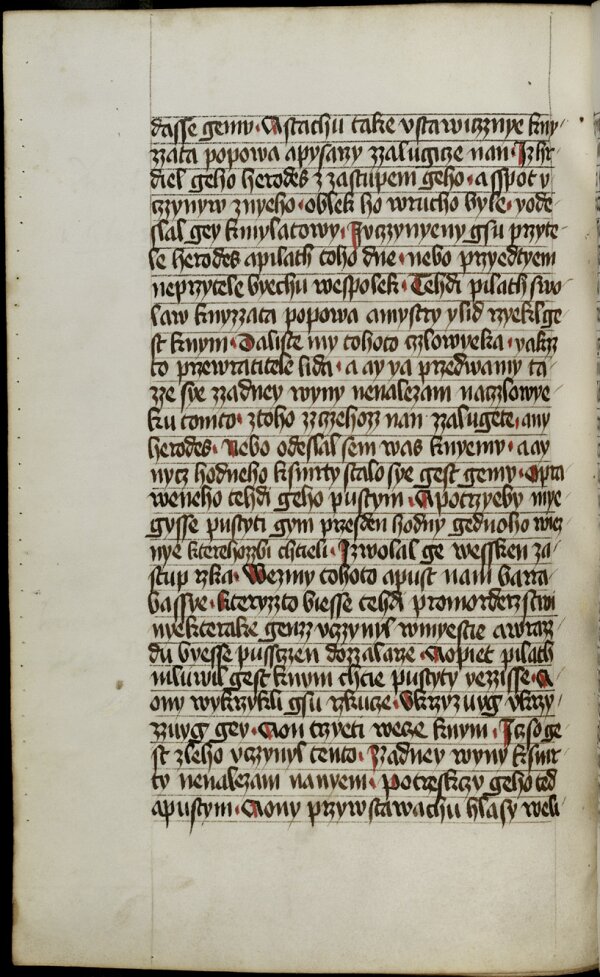 dasse gemu · Astachu take vstawicznye kny
zzata popowa apysarzy zzalugicze nan · Izhr
diel geho herodes z zastupem geho · a sspot v
czynyw znyeho · oblek ho wrucho byle · yode
slal gey kmylatowy · Jvczynyeny gsu przyte
le herodes apilath toho dne · nebo przyedtyem
neprzytele byechu wespolek · Tehdi pilath swo
law knyzzata popowa amystry ylid rzyekl ge
st knym · Daliste my tohoto czlowyeka · yakz
to przewratitele lida · a ay ya przedwamy ta
zze sye zzadney wyny nenalezam naczlowye
ku tomto · ztoho zzczehozz nan zzalugete · any
herodes · Nebo odeslal sem was knyemu · a ay
nycz hodneho ksmrty stalo sye gest gemy · Opra
weneho tehdi geho pustym · A potrzyeby mye
gysse pustyti gym przesden hodny gednoho wiez
nye kterehozzbi chtieli · Izwolal ge wessken za
stup rzka · Wezmy tohoto apust nam barra
bassye · kteryzzto biesse tehdi promorderzstwi
nyekterake genzz vczynyl wmyestie awrazz
du byesse pusstzen dozzalarze · Aopiet pilath
mluwil gest knym chtie pustyty yezzisse · A
ony wykrzykli gsu rzkucze · Vkrzyzuyg vkrzy
zzuyg gey · Aon trzyeti wecze knym · Iczso ge
st zleho vczynyl tento · Zzadney wyny ksmr
ty nenalezam nanyem · potreskczy geho ted
apustym · Aony przywstawachu hlasy weli